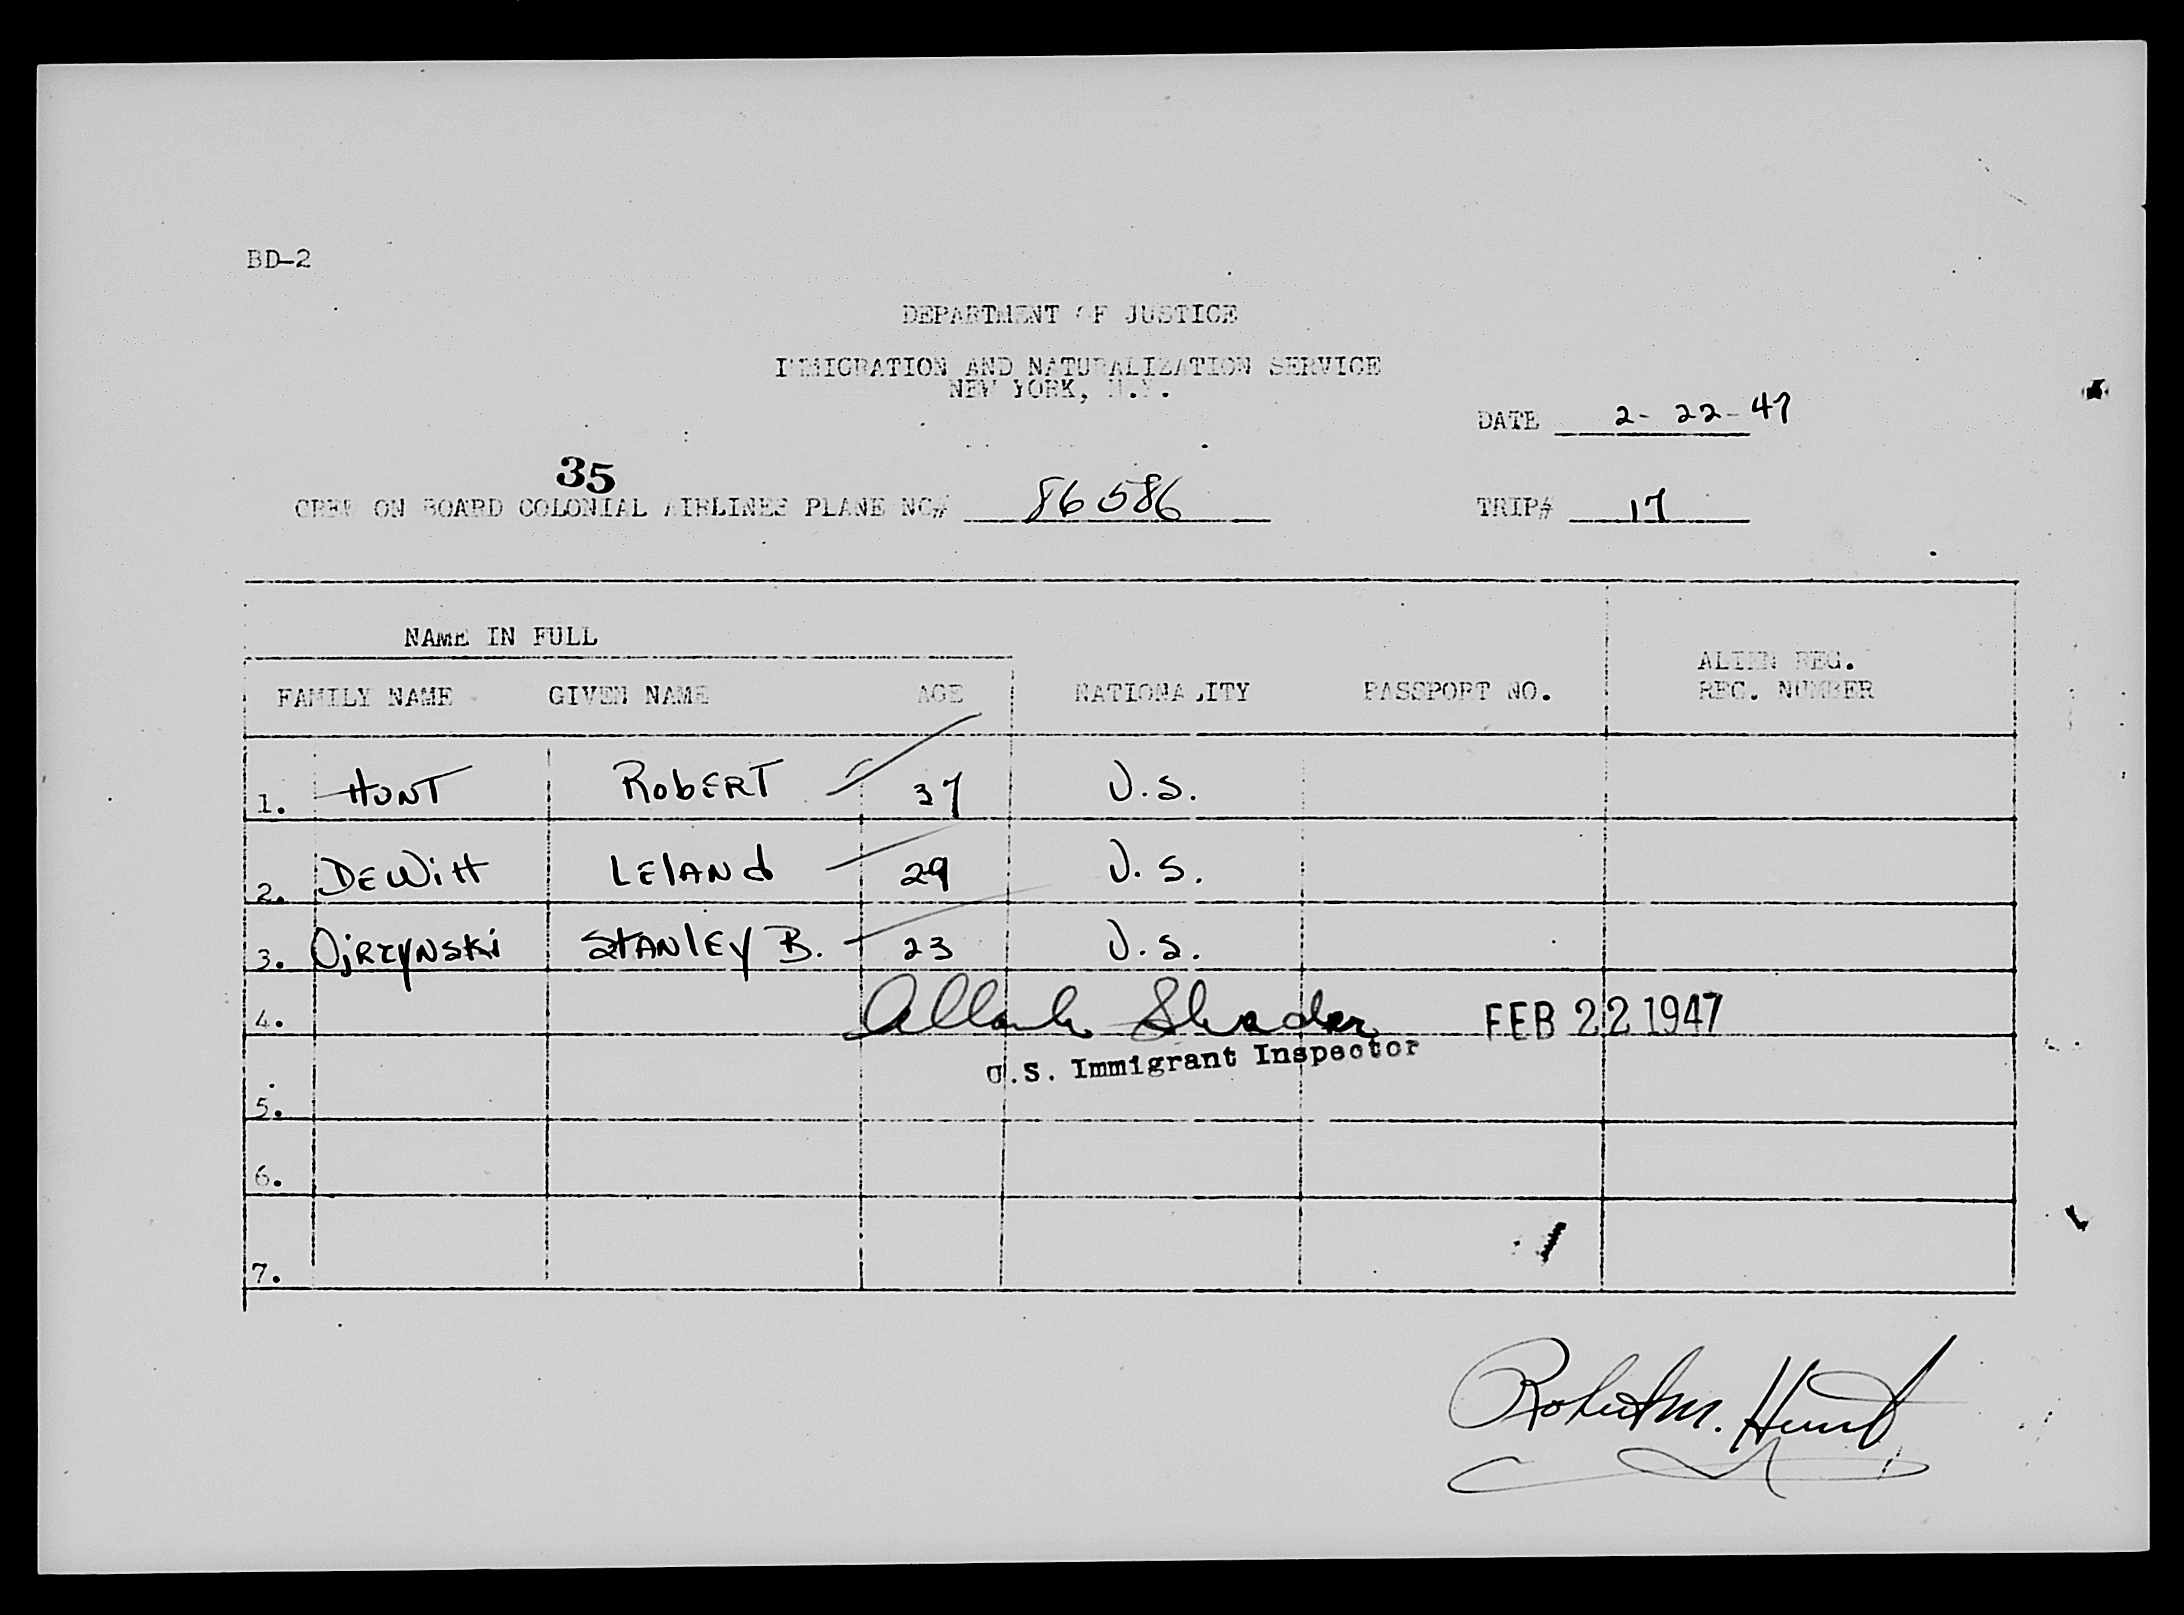 BD-2
DEPARTMENT OF JUSTICE
IMMIGRATION AND NATURALIZATION SERVICE
NEW YORK, N.Y.
DATE 2-22-47
35
CREW ON BOARD COLONIAL AIRLINES PLANE NC# 86586
TRIP# 17
NAME IN FULL
FAMILY NAME GIVEN NAME AGE NATIONALITY PASSPORT NO. ALIEN REG. REC. NUMBER
1. HUNT ROBERT 37 U.S.
2. DEWITT LELAND 29 U.S.
3. OJRZYNSKI STANLEY B. 23 U.S.
4. Shader FEB 22 1947
U.S. Immigrant Inspector
5.
6.
7.
Robert M. Hunt